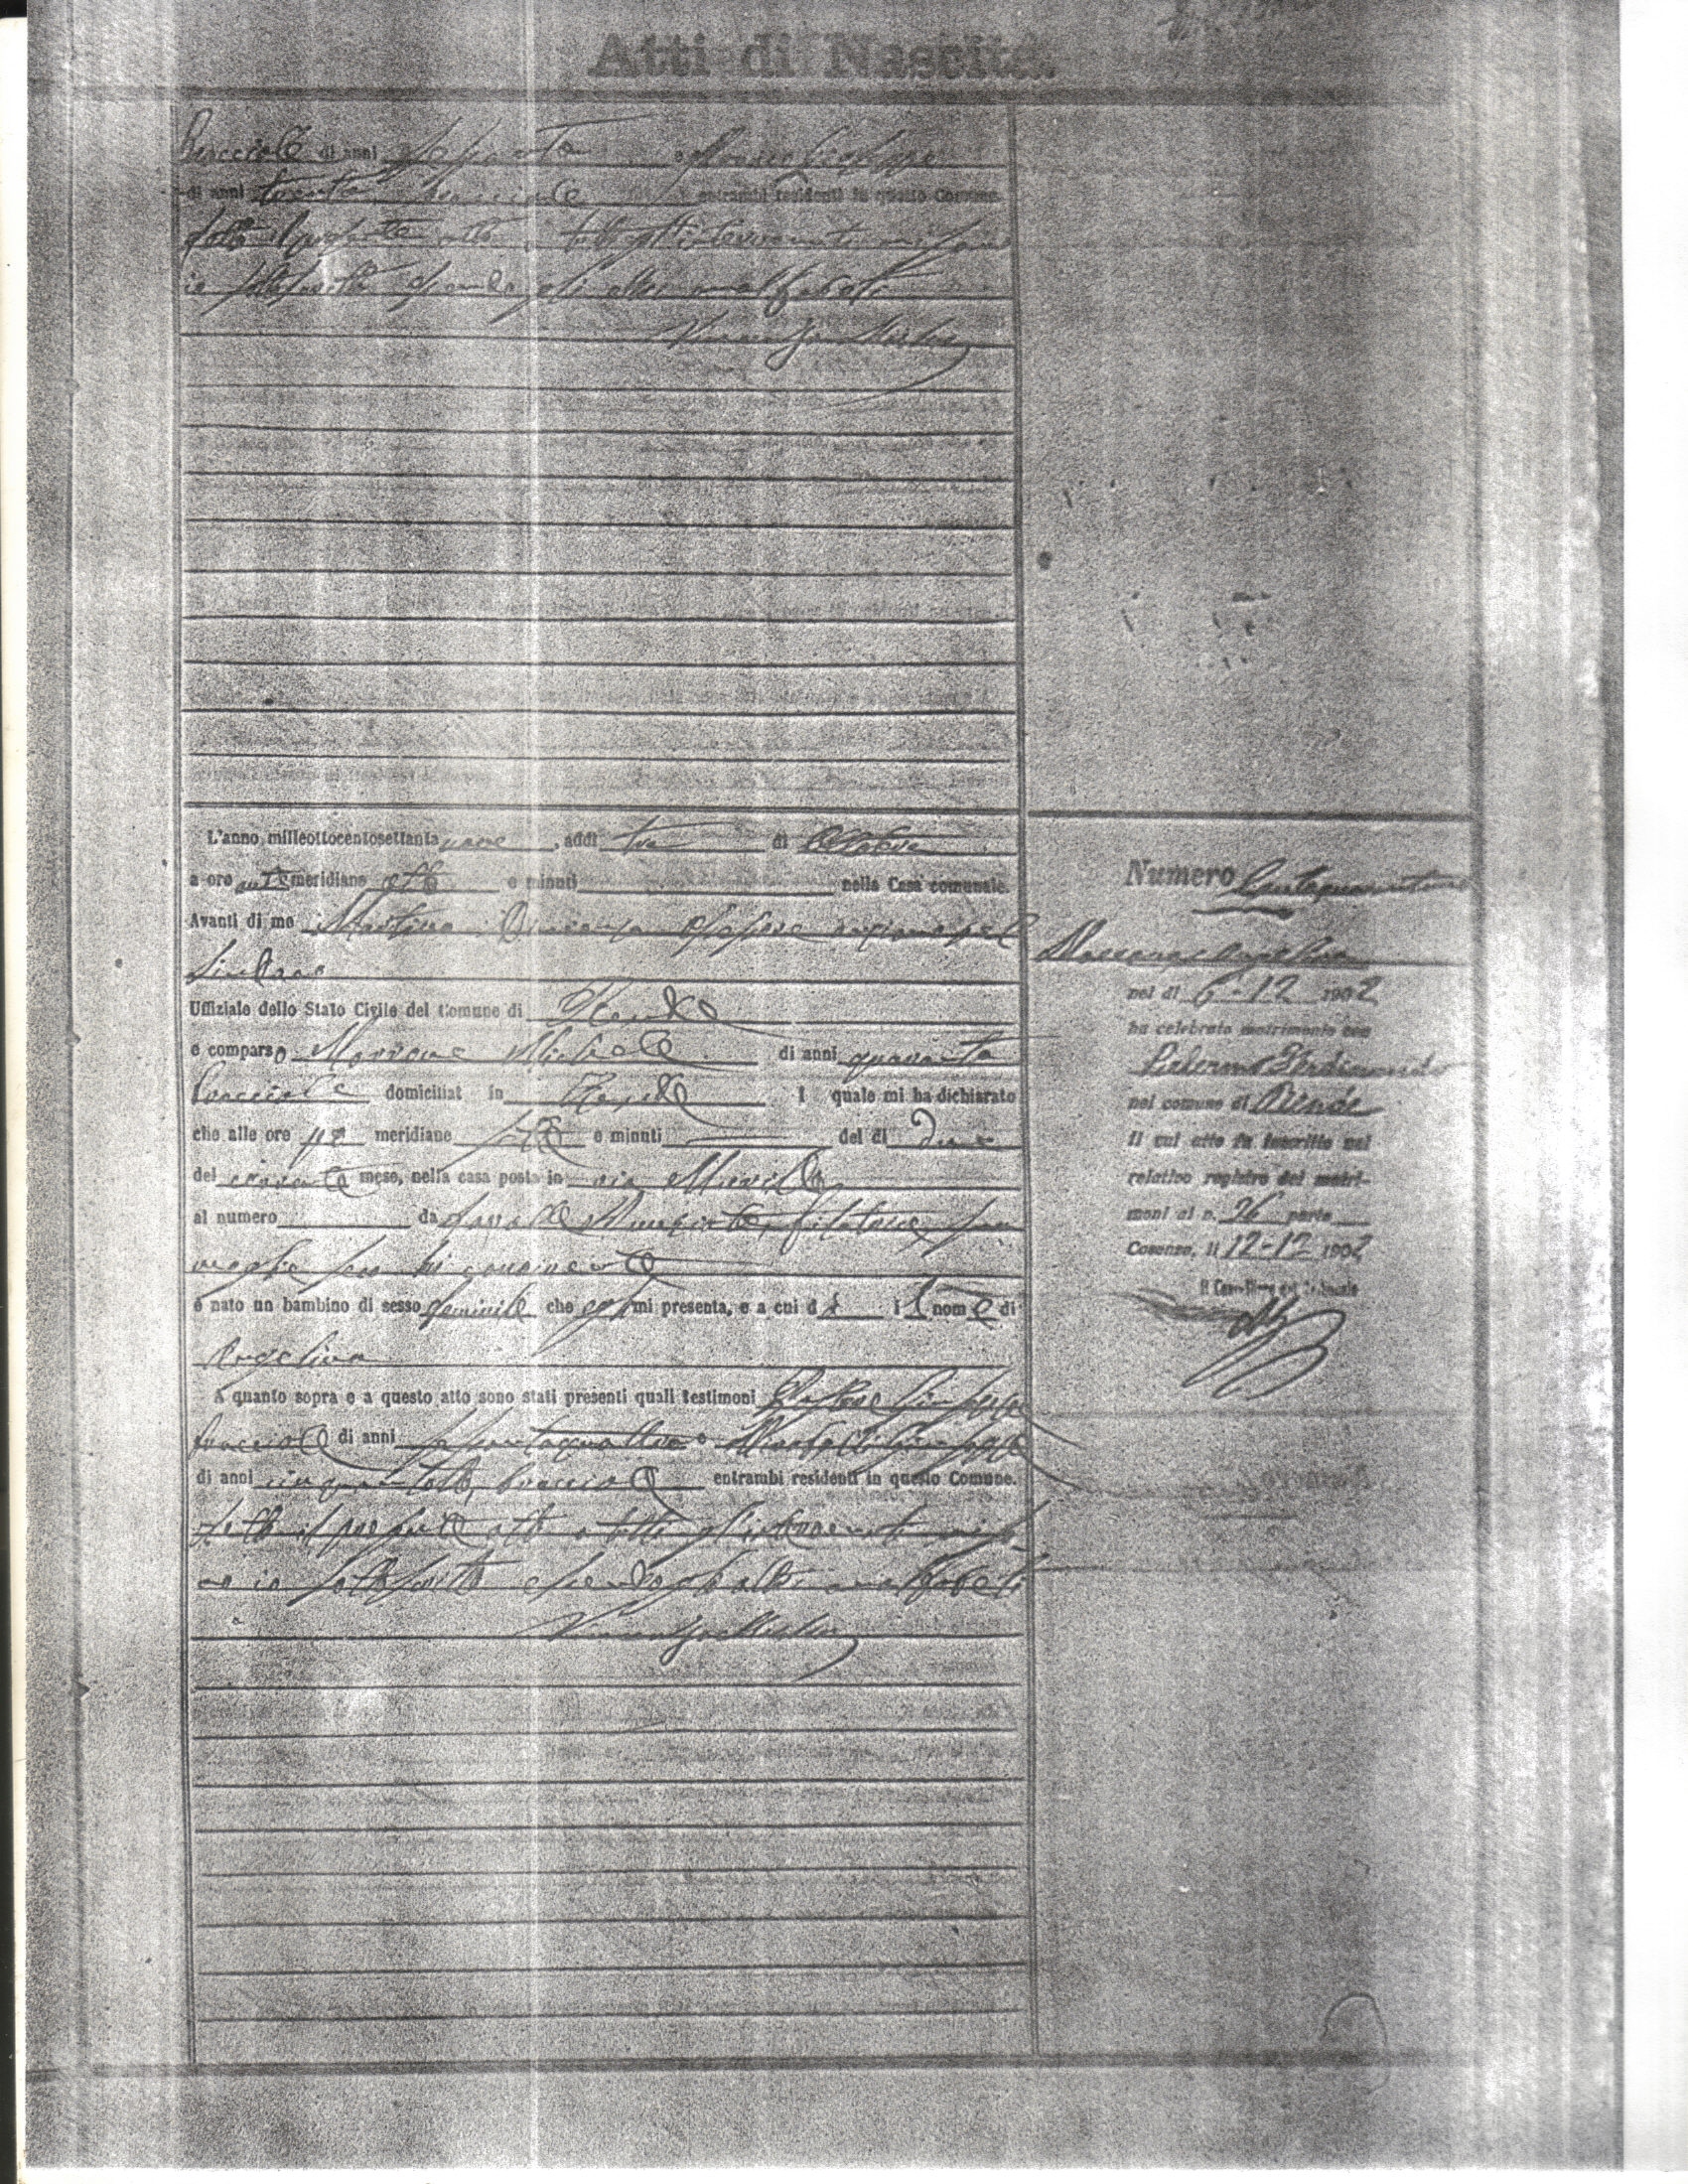 Atti di Nascita.
Bracciale di anni sessanta e
di anni trenta bracciale entrambi residenti in questo Comune.
Letto il presente atto a tutti gl'intervenuti mi sono
io sottoscritto essendo gli altri analfabeti
Vincenzo Martino
L'anno milleottocentosettantanove, addì tre di Ottobre
a ore antimeridiane otto e minuti nella Casa comunale.
Avanti di me Martino Vincenzo Assessore pel
Sindaco
Uffiziale dello Stato Civile del Comune di Rende
è comparso Morrone Michele di anni quaranta
bracciale domiciliat in Rende i quale mi ha dichiarato
che alle ore meridiane sette e minuti del dì due
del corrente mese, nella casa posta in via
al numero da Nunziata, filatrice, sua
moglie seco lui convivente
è nato un bambino di sesso feminile che mi presenta, e a cui dà il nome di
Angelina
A quanto sopra e a questo atto sono stati presenti quali testimoni Pastore Giuseppe
bracciale di anni sessantaquattro e Giuseppe
di anni cinquantotto, bracciale entrambi residenti in questo Comune.
Letto il presente atto a tutti gl'intervenuti mi so-
no io sottoscritto essendo gli altri analfabeti
Vincenzo Martino
Numero Centoquarantuno
Morrone Angelina
nel dì 6-12 1902
ha celebrato matrimonio con
Palermo Ferdinando
nel comune di Rende
Il cui atto fu inscritto nel
relativo registro dei matri-
moni al n. 26 parte
Cosenza, lì 12-12 1902
Il Cancelliere del Tribunale